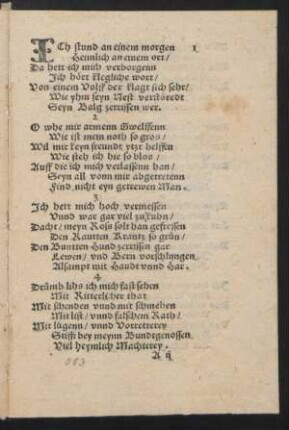 ICh stund an einem morgen 1
Heimlich an einem ort/
Da hett ich mich verborgenn
Ich hört klegliche wort/
Von einem Wolff der klagt sich sehr/
Wie yhm seyn Nest verstöredt
Seyn Balg zerrissen wer.
2
O whe mir armenn Gwelffenn
Wie ist mein noth so gros/
Wil mir keyn freundt ytzt helffen
Wie steh ich hie so blos/
Auff die ich mich verlassenn han/
Seyn all vonn mir abgetretenn
Find nicht eyn getrewen Man.
3
Ich hett mich hoch vermessen
Vnnd war gar viel zukuhn/
Dacht/ meyn Ross solt han gefressen
Den Rautten Krantz so grün/
Den Buntten Hund zerrissen gar
Lewen/ vnd Bern vorschlungen
Alsampt mit Haudt vnnd Har.
4
Drümb liés ich mich fast sehen
Mit Ritterlicher that
Mit schenden vnnd mit schmehen
Mit list/ vnnd falschem Rath/
Mit lügenn/ vnnd Vorreterey
Stifft bey meynn Bundtgenossen
Viel heymlich Machterey.
A ij
083